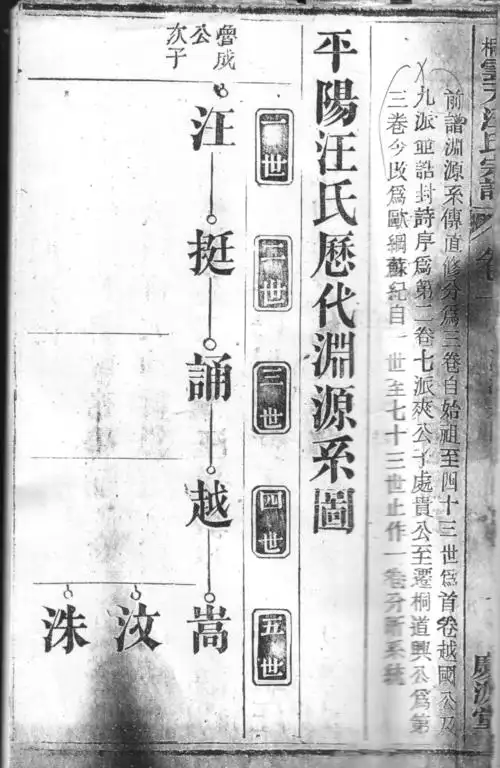 汪氏宗譜
前譜淵源系傳直修分爲三卷自始祖至四十三世爲首卷越國公及
九派並誥封詩序爲第二卷七派爽公子處貴公至遷桐道興公爲第
三卷今改爲歐綱蘇紀自一世至七十三世止作一卷分晰系統
平陽汪氏歷代淵源系圖
一世
二世
三世
四世
五世
魯成
公
次子
汪
挺
誦
越
嵩
汶
洙